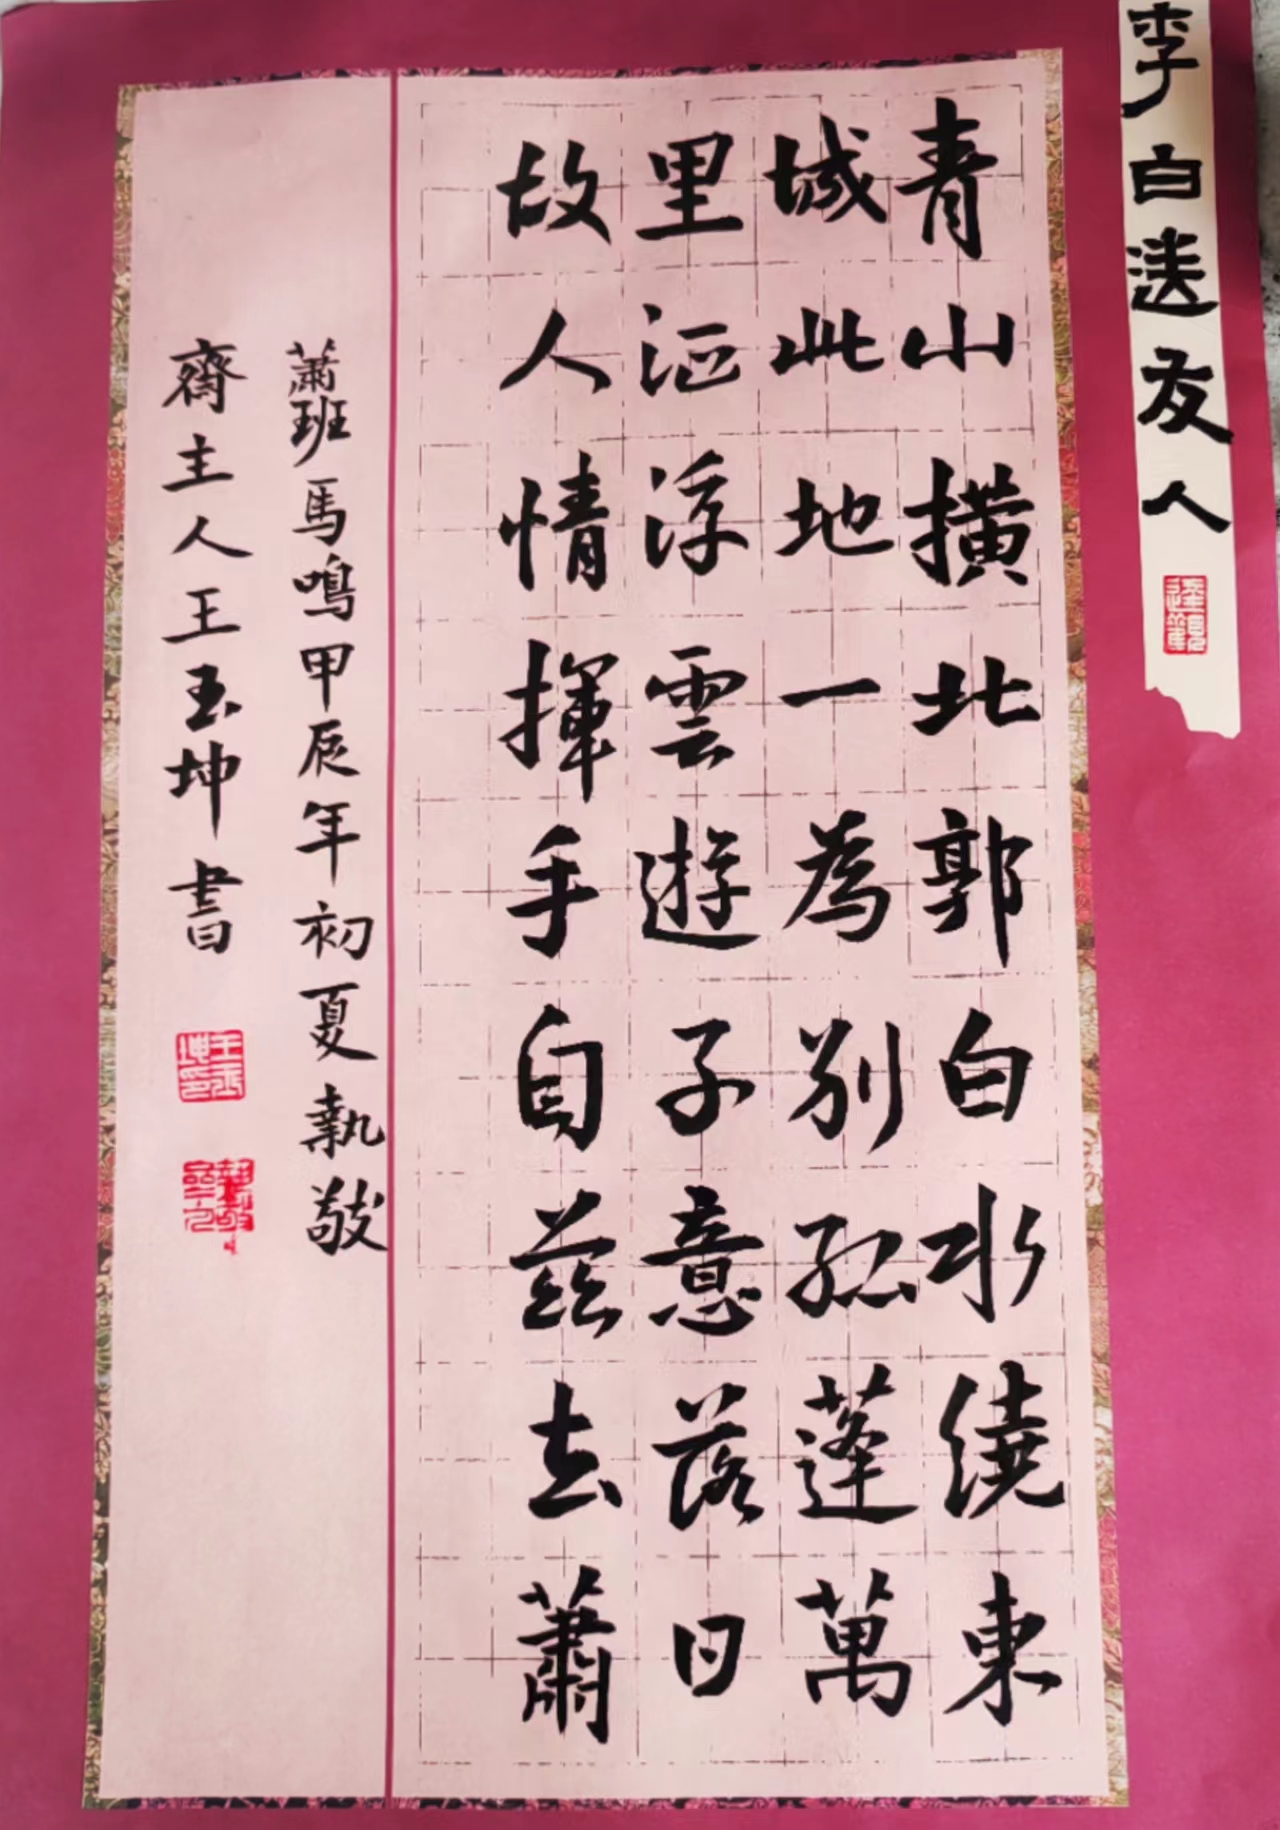 李白送友人
青山橫北郭白水繞東
城此地一為別孤蓬萬
里征浮雲遊子意落日
故人情揮手自茲去蕭
蕭班馬鳴甲辰年初夏執敬
齋主人王玉坤書
王玉坤印